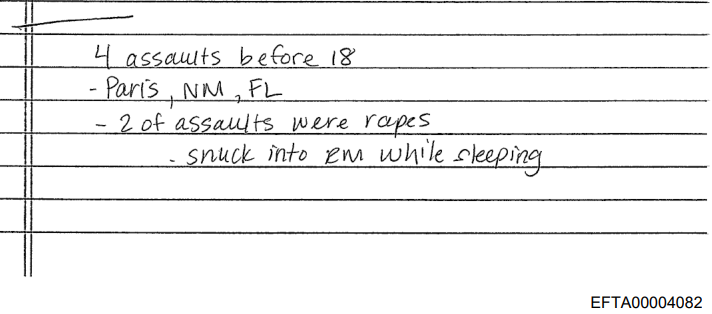 4 assaults before 18
- Paris, NM, FL
- 2 of assaults were rapes
- snuck into RM while sleeping
EFTA00004082